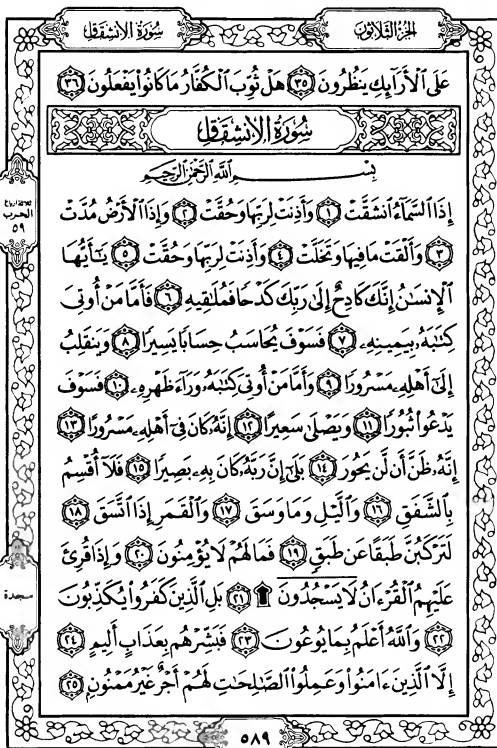 سُورَةُ الانشِقَاقِ الجُزءُ الثَّلَاثُونَ
عَلَى ٱلْأَرَآئِكِ يَنظُرُونَ ٣٥ هَلْ ثُوِّبَ ٱلْكُفَّارُ مَا كَانُوا۟ يَفْعَلُونَ ٣٦
سُورَةُ الانشِقَاقِ
بِسْمِ ٱللَّهِ ٱلرَّحْمَٰنِ ٱلرَّحِيمِ
إِذَا ٱلسَّمَآءُ ٱنشَقَّتْ ١ وَأَذِنَتْ لِرَبِّهَا وَحُقَّتْ ٢ وَإِذَا ٱلْأَرْضُ مُدَّتْ
٣ وَأَلْقَتْ مَا فِيهَا وَتَخَلَّتْ ٤ وَأَذِنَتْ لِرَبِّهَا وَحُقَّتْ ٥ يَٰٓأَيُّهَا
ٱلْإِنسَٰنُ إِنَّكَ كَادِحٌ إِلَىٰ رَبِّكَ كَدْحًا فَمُلَٰقِيهِ ٦ فَأَمَّا مَنْ أُوتِىَ
كِتَٰبَهُۥ بِيَمِينِهِۦ ٧ فَسَوْفَ يُحَاسَبُ حِسَابًا يَسِيرًا ٨ وَيَنقَلِبُ
إِلَىٰٓ أَهْلِهِۦ مَسْرُورًا ٩ وَأَمَّا مَنْ أُوتِىَ كِتَٰبَهُۥ وَرَآءَ ظَهْرِهِۦ ١٠ فَسَوْفَ
يَدْعُوا۟ ثُبُورًا ١١ وَيَصْلَىٰ سَعِيرًا ١٢ إِنَّهُۥ كَانَ فِىٓ أَهْلِهِۦ مَسْرُورًا ١٣
إِنَّهُۥ ظَنَّ أَن لَّن يَحُورَ ١٤ بَلَىٰٓ إِنَّ رَبَّهُۥ كَانَ بِهِۦ بَصِيرًا ١٥ فَلَآ أُقْسِمُ
بِٱلشَّفَقِ ١٦ وَٱلَّيْلِ وَمَا وَسَقَ ١٧ وَٱلْقَمَرِ إِذَا ٱتَّسَقَ ١٨
لَتَرْكَبُنَّ طَبَقًا عَن طَبَقٍ ١٩ فَمَا لَهُمْ لَا يُؤْمِنُونَ ٢٠ وَإِذَا قُرِئَ
عَلَيْهِمُ ٱلْقُرْءَانُ لَا يَسْجُدُونَ ۩ ٢١ بَلِ ٱلَّذِينَ كَفَرُوا۟ يُكَذِّبُونَ
٢٢ وَٱللَّهُ أَعْلَمُ بِمَا يُوعُونَ ٢٣ فَبَشِّرْهُم بِعَذَابٍ أَلِيمٍ ٢٤
إِلَّا ٱلَّذِينَ ءَامَنُوا۟ وَعَمِلُوا۟ ٱلصَّٰلِحَٰتِ لَهُمْ أَجْرٌ غَيْرُ مَمْنُونٍ ٢٥
ثلاثة أرباع
الحزب
٥٩
سجدة
٥٨٩